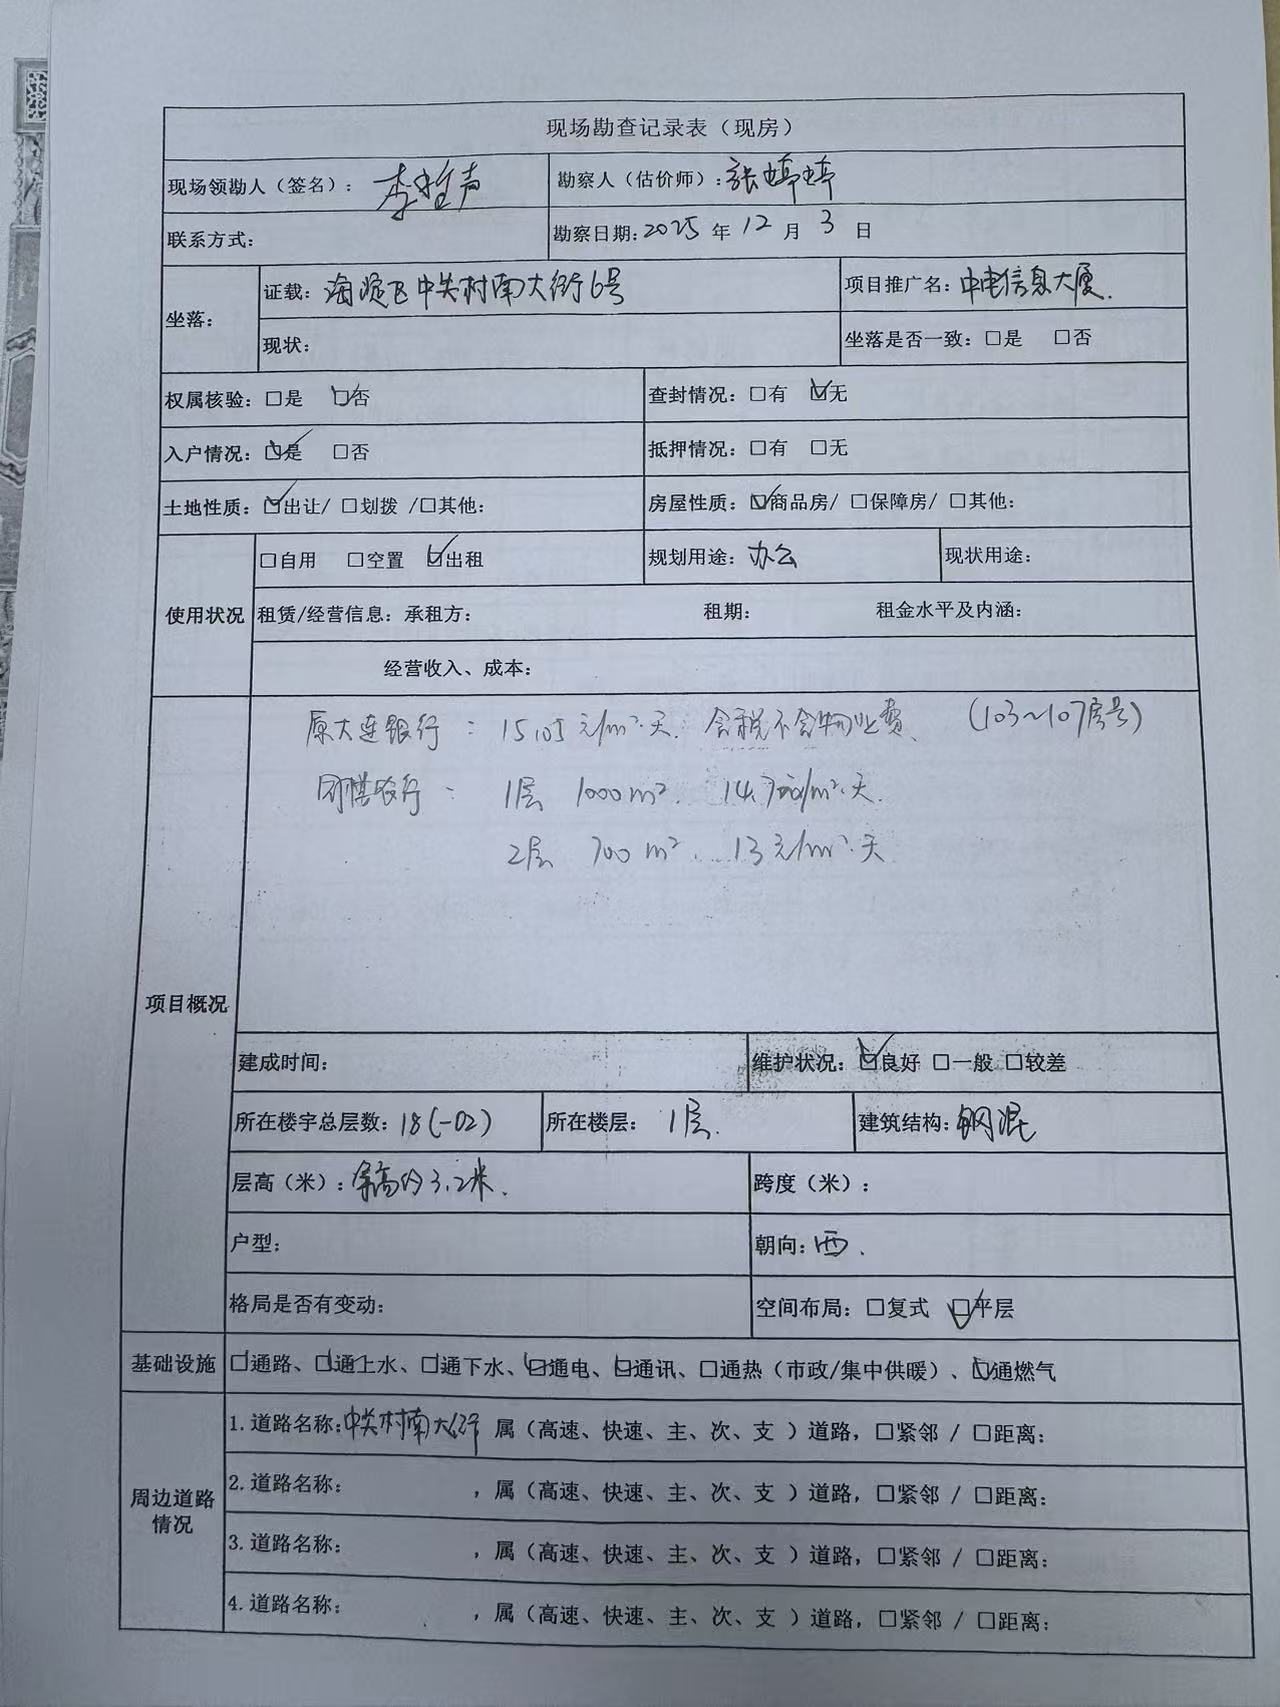 现场勘查记录表（现房）
现场领勘人（签名）：
勘察人（估价师）：张婷婷
联系方式：
勘察日期：2025年12月3日
坐落：
证载：海淀区中关村南大街6号
项目推广名：中电信息大厦.
现状：
坐落是否一致：□是 □否
权属核验：□是 ☑否
查封情况：□有 ☑无
入户情况：☑是 □否
抵押情况：□有 □无
土地性质：☑出让/ □划拨 /□其他：
房屋性质：☑商品房/ □保障房/ □其他：
使用状况
□自用 □空置 ☑出租
规划用途：办公
现状用途：
租赁/经营信息：承租方： 租期： 租金水平及内涵：
经营收入、成本：
项目概况
原大连银行： 15.05元/m²·天. 含税不含物业费、 (103~107房号)
银行： 1层 1000m². 14.7元/m²·天.
2层 700m². 13元/m²·天
建成时间：
维护状况：☑良好 □一般 □较差
所在楼宇总层数：18(-02)
所在楼层：1层.
建筑结构：钢混
层高（米）：层高约3.2米.
跨度（米）：
户型：
朝向：西.
格局是否有变动：
空间布局：□复式 ☑平层
基础设施
☑通路、☑通上水、☑通下水、☑通电、☑通讯、□通热（市政/集中供暖）、☑通燃气
周边道路情况
1.道路名称：中关村南大街 属（高速、快速、主、次、支 ）道路，□紧邻 / □距离：
2.道路名称： ，属（高速、快速、主、次、支 ）道路，□紧邻 / □距离：
3.道路名称： ，属（高速、快速、主、次、支 ）道路，□紧邻 / □距离：
4.道路名称： ，属（高速、快速、主、次、支 ）道路，□紧邻 / □距离：